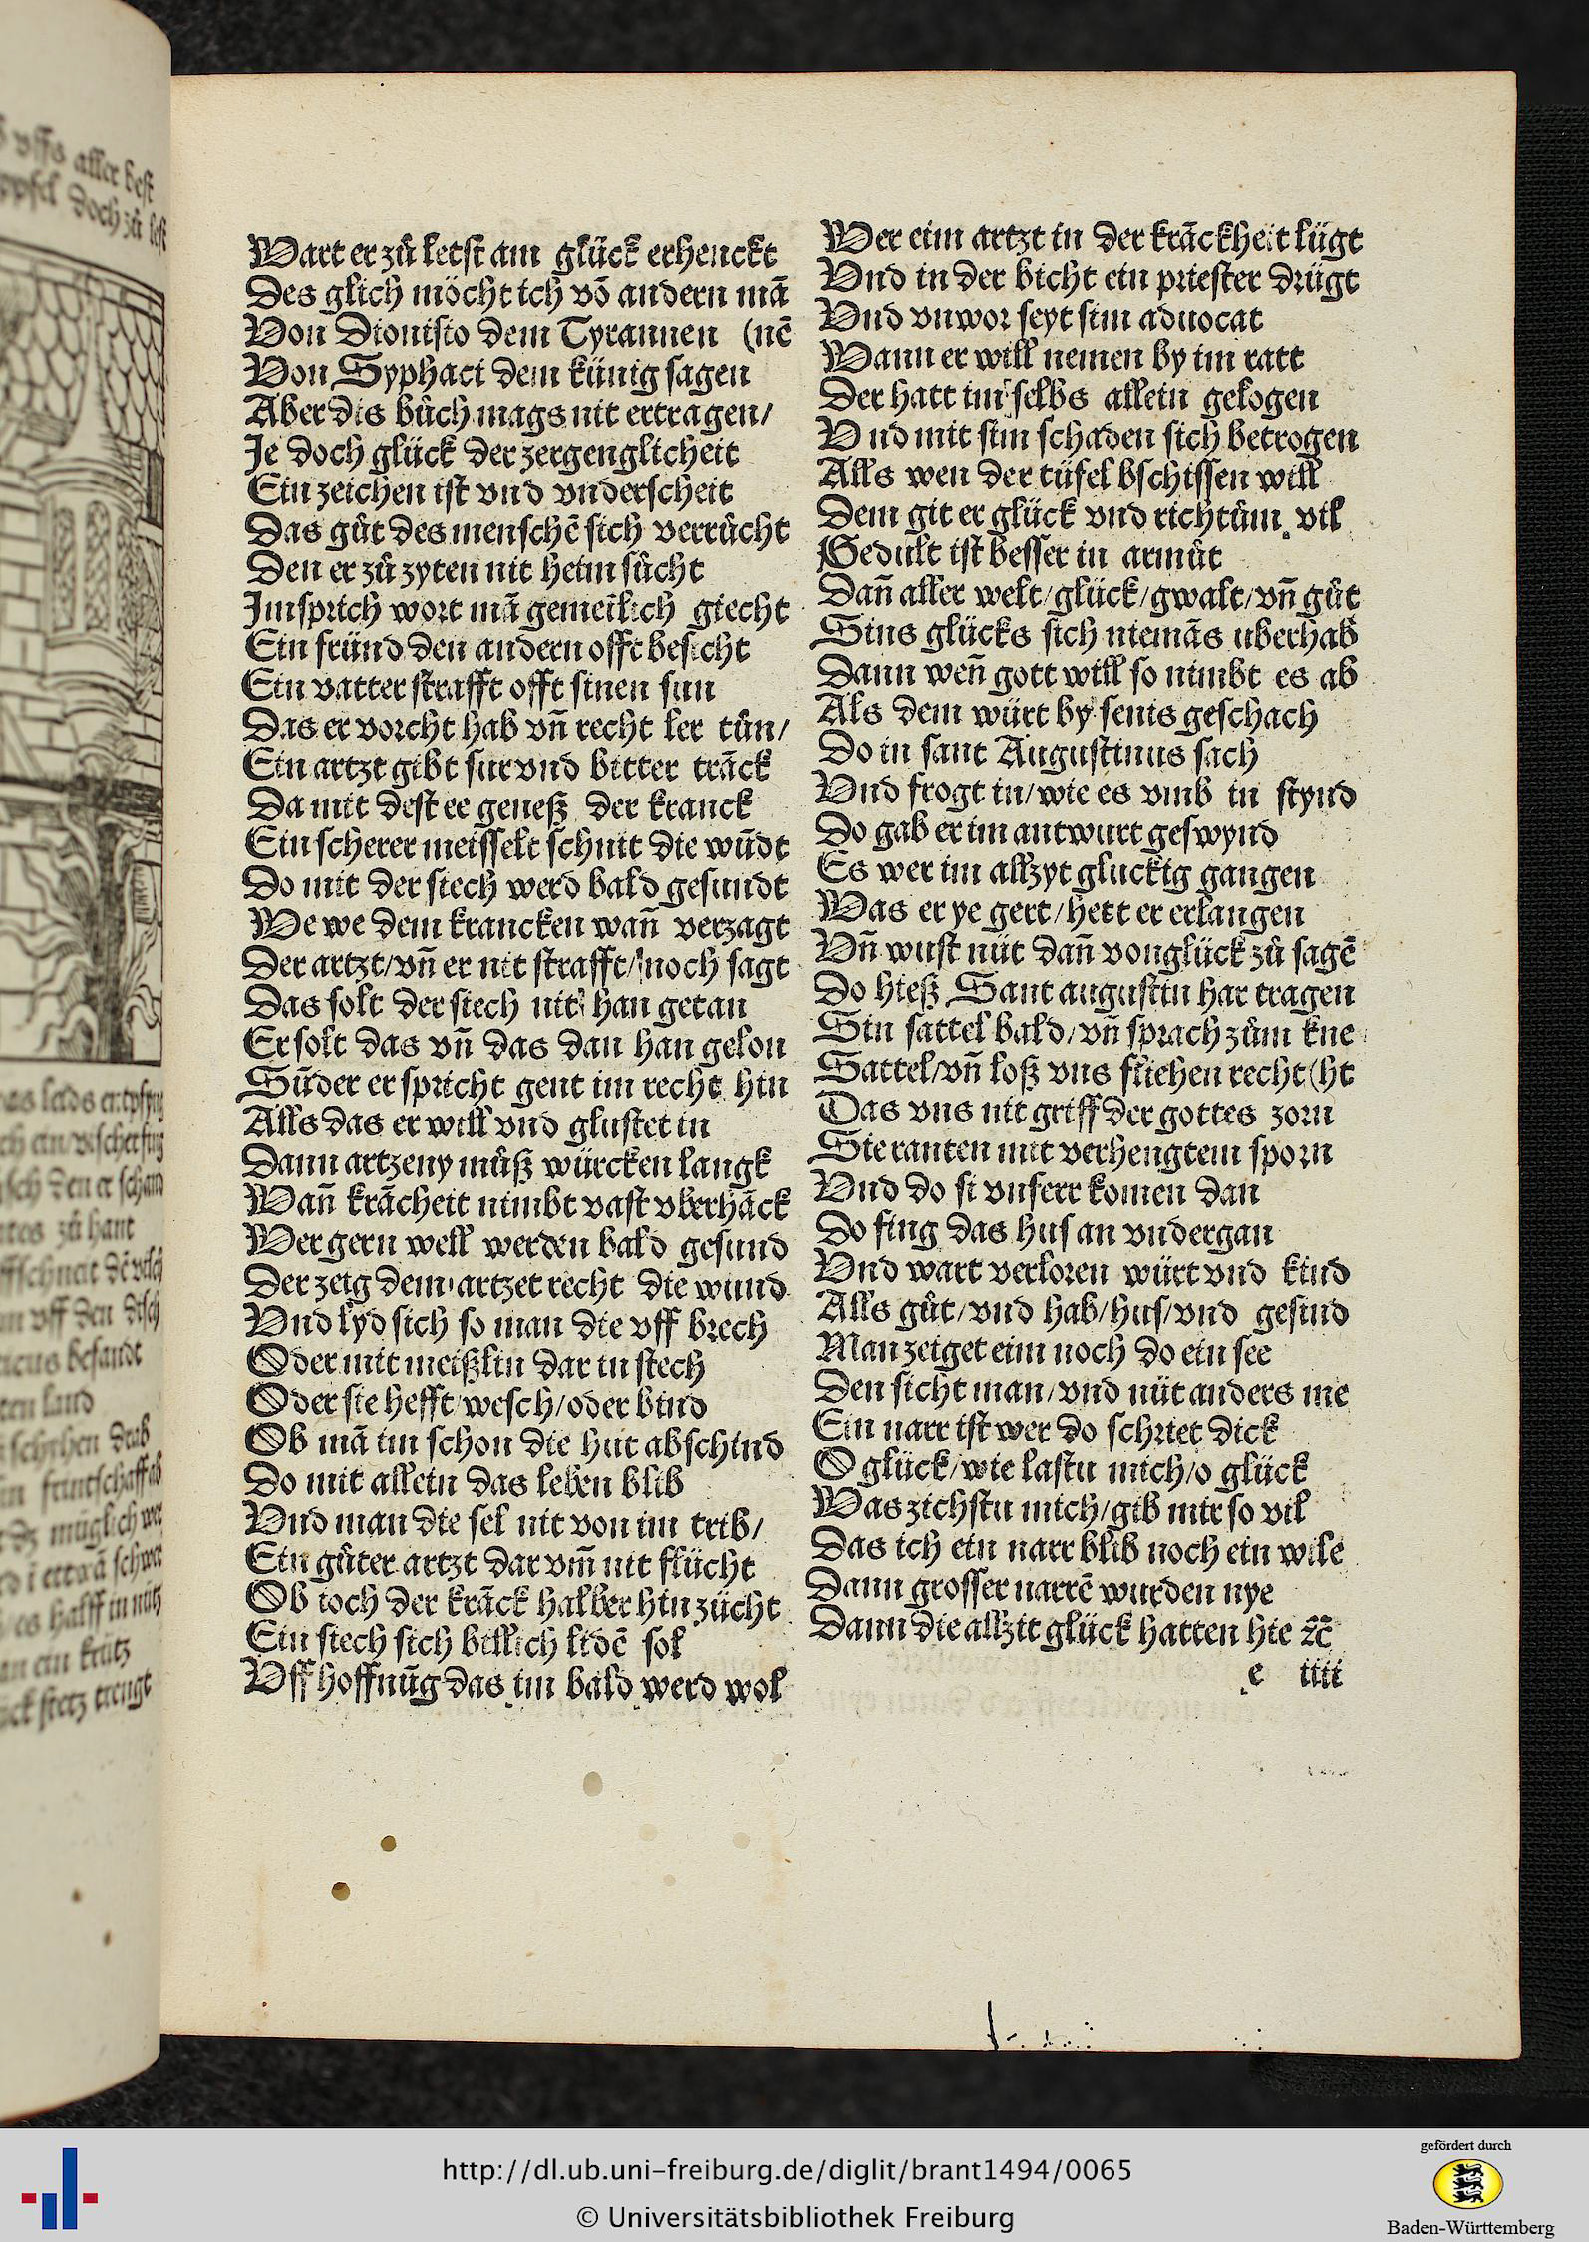 Wart er zů letst am glück erhenckt
Des glich möcht ich vō andern mā
Von Dionisio dem Tyrannen (nē
Von Syphaci dem künig sagen
Aber dis bůch mags nit ertragen/
Je doch glück der zergenglicheit
Ein zeichen ist vnd vnderscheit
Das gůt des menschē sich verrůcht
Den er zů zyten nit heim sůcht
Im sprich wort mā gemeilich giecht
Ein fründ den andern offt besicht
Ein vatter strafft offt sinen sun
Das er vorcht hab vñ recht ler tůn/
Ein artzt gibt sur vnd bitter träck
Da mit dest ee geneß der kranck
Ein scherer meisselt schnit die wūdt
Do mit der siech werd bald gesundt
We we dem krancken wañ verzagt
Der artzt/vñ er nit strafft/noch sagt
Das solt der siech nit han getan
Er solt das vñ das dan han gelon
Sūder er spricht gent im recht hin
Alls das er will vnd glustet in
Dann artzeny můß würcken langk
Wañ krācheit nimbt vast vberhāck
Wer gern well werden bald gesund
Der zeig dem artzet recht die wund
Vnd lyd sich so man die vff brech
Oder mit meißlin dar in stech
Oder sie hefft/wesch/oder bind
Ob mā im schon die hut abschind
Do mit allein das leben blib
Vnd man die sel nit von im trib/
Ein gůter artzt dar vm̄ nit flücht
Ob ioch der kräck halber hin zücht
Ein siech sich billich lidē sol
Vff hoffnūg das im bald werd wol
Wer eim artzt in der krāckheit lügt
Vnd in der bicht ein priester drügt
Vnd vnwor seyt sim aduocat
Wann er will nemen by im ratt
Der hatt im selbs allein gelogen
Vnd mit sim schaden sich betrogen
Alls wen der tüfel bschissen will
Dem git er glück vnd richtům vil
Gedult ist besser in armůt
Dañ aller welt/glück/gwalt/vñ gůt
Sins glücks sich niemās uberhab
Dann weñ gott will so nimbt es ab
Als dem würt by senis geschach
Do in sant Augustinus sach
Vnd frogt in/wie es vmb in stynd
Do gab er im antwurt geswynd
Es wer im allzyt gluckig gangen
Was er ye gert/hett er erlangen
Vñ wust nüt dañ vonglück zů sagē
Do hieß Sant augustin har tragen
Sin sattel bald/vñ sprach zům kne
Sattel/vñ loß vns fliehen recht (ht
Das vns nit griff der gottes zorn
Sie ranten mit verhengtem sporn
Vnd do si vnferr komen dan
Do fing das hus an vndergan
Vnd wart verloren würt vnd kind
Alls gůt/vnd hab/hus/vnd gesind
Man zeiget eim noch do ein see
Den sicht man/vnd nüt anders me
Ein narr ist wer do schriet dick
O glück/wie lastu mich/o glück
Was zichstu mich/gib mir so vil
Das ich ein narr blib noch ein wile
Dann grosser narrē wurden nye
Dann die allzit glück hatten hie ⁊c̄
e iiii
http://dl.ub.uni-freiburg.de/diglit/brant1494/0065
© Universitätsbibliothek Freiburg
gefördert durch
Baden-Württemberg